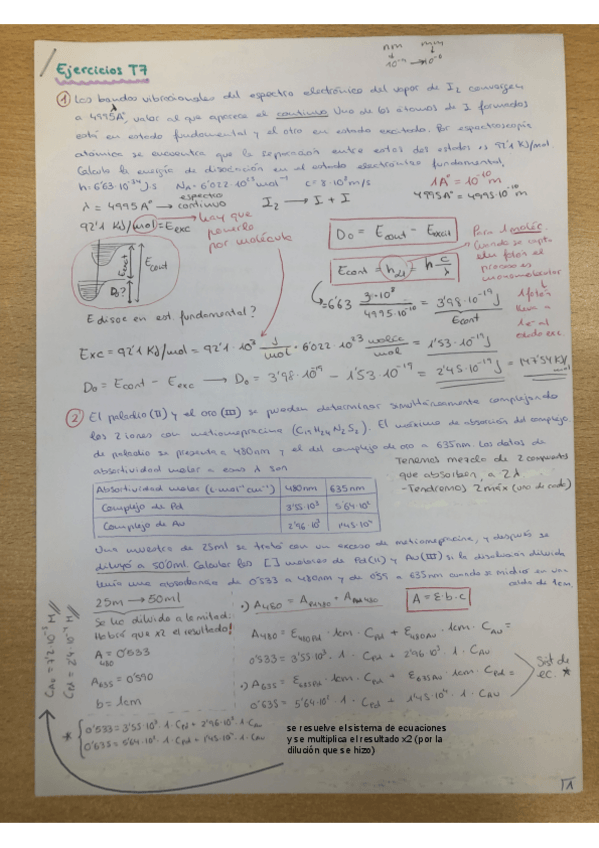 nm mm
Ejercicios T7
① Las bandas vibracionales del espectro electrónico del vapor de I₂ convergen
a 4995A°, valor al que aparece el continuo. Uno de los átomos de I formados
está en estado fundamental y el otro en estado excitado. Por espectroscopía
atómica se encuentra que la separación entre estos dos estados es 92'1 KJ/mol.
Calcula la energía de disociación en el estado electrónico fundamental,
h=6'63·10⁻³⁴J·s NA=6'022·10²³mol⁻¹ c=3·10⁸m/s
1A°=10⁻¹⁰m
λ = 4995A° → espectro continuo I₂ → I + I 4995A°=4995·10⁻¹⁰m
92'1 KJ/mol = Eexc → hay que ponerlo por molécula
D₀ = Econt − Eexcit
Para 1 moléc.
Cuando se capta
el proceso es
monomolecular
Econt = h = h·c/λ
Eexc Econt D₀?
= 6'63 3·10⁸/4995·10⁻¹⁰ = 3'98·10⁻¹⁹J
Econt
1 fotón
lleva a
1e⁻ al
E disoc en est. fundamental?
Exc = 92'1 KJ/mol = 92'1·10³ J/mol · 6'022·10²³ moléc/mol = 1'53·10⁻¹⁹J
D₀ = Econt − Eexc → D₀ = 3'98·10⁻¹⁹ − 1'53·10⁻¹⁹ = 2'45·10⁻¹⁹J = 147'54KJ/mol
② El paladio(II) y el oro(III) se pueden determinar simultáneamente complejando
los 2 iones con metiomepracina (C₁₉H₂₄N₂S₂). El máximo de absorción del complejo
de paladio se presenta a 480nm y el del complejo de oro a 635nm. Los datos de
absortividad molar a esas λ son
Tenemos mezcla de 2 compuestos
que absorben, a 2λ
- Tendremos 2 máx (uno de cada)
Absortividad molar (L·mol⁻¹cm⁻¹) 480nm 635nm
Complejo de Pd 3'55·10³ 5'64·10²
Complejo de Au 2'96·10³ 1'45·10⁴
Una muestra de 25ml se trató con un exceso de metiomepracina, y después se
diluyó a 50'0ml. Calcular las [ ] molares de Pd(II) y Au(III) si la disolución diluida
tenía una absorbancia de 0'533 a 480nm y de 0'59 a 635nm cuando se midió en una
celda de 1cm.
25m → 50ml
Se ha diluido a la mitad:
Habrá que x2 el resultado!
A480 = 0'533
A635 = 0'590
b = 1cm
CAu = 7'2·10⁻⁵ M
CPd = 2'4·10⁻⁴ M
A = ε·b·c
A480 = ε480Pd · 1cm · CPd + ε480Au · 1cm · CAu =
0'533 = 3'55·10³ · 1 · CPd + 2'96·10³ · 1 · CAu
·) A635 = ε635Pd · 1cm · CPd + ε635Au · 1cm · CAu =
0'635 = 5'64·10² · 1 · CPd + 1'45·10⁴ · 1 · CAu
Sist de
ec. *
* { 0'533 = 3'55·10³ · 1 · CPd + 2'96·10³ · 1 · CAu
0'635 = 5'64·10² · 1 · CPd + 1'45·10⁴ · 1 · CAu
se resuelve el sistema de ecuaciones
y se multiplica el resultado x2 (por la
dilución que se hizo)